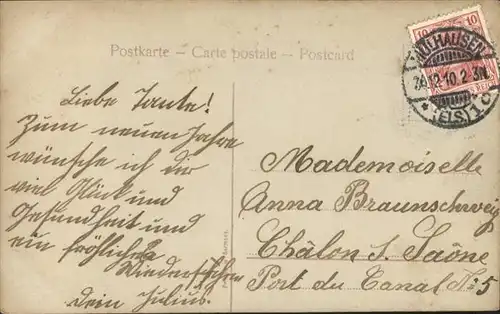 Postkarte – Carte postale – Postcard
10 10
MÜLHAUSEN
26.12.10.2-3N
* (ELS) 1 c
Liebe Tante!
Zum neuen Jahre
wünsche ich dir
viel Glück und
Gesundheit und
ein fröhliches
Wiedersehen
Dein Julius.
Mademoiselle
Anna Braunschweig
Châlon s. Saône
Port du Canal No 5